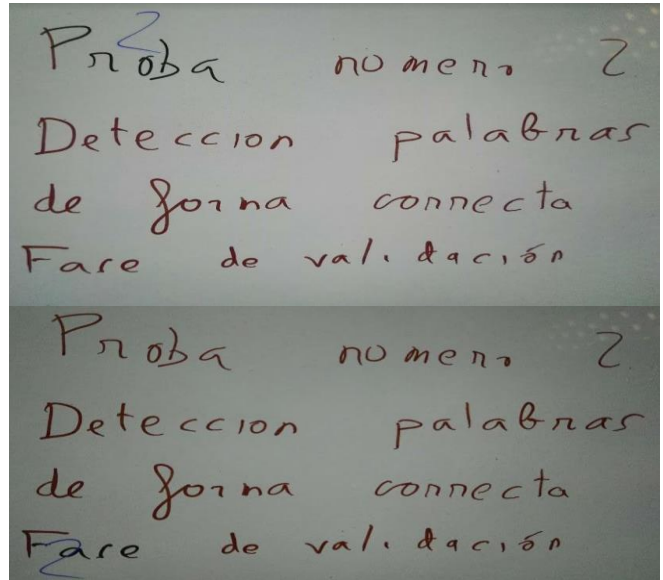 Proba numero 2
Deteccion palabras
de forma correcta
Fase de validación
Proba numero 2
Deteccion palabras
de forma correcta
Fase de validación